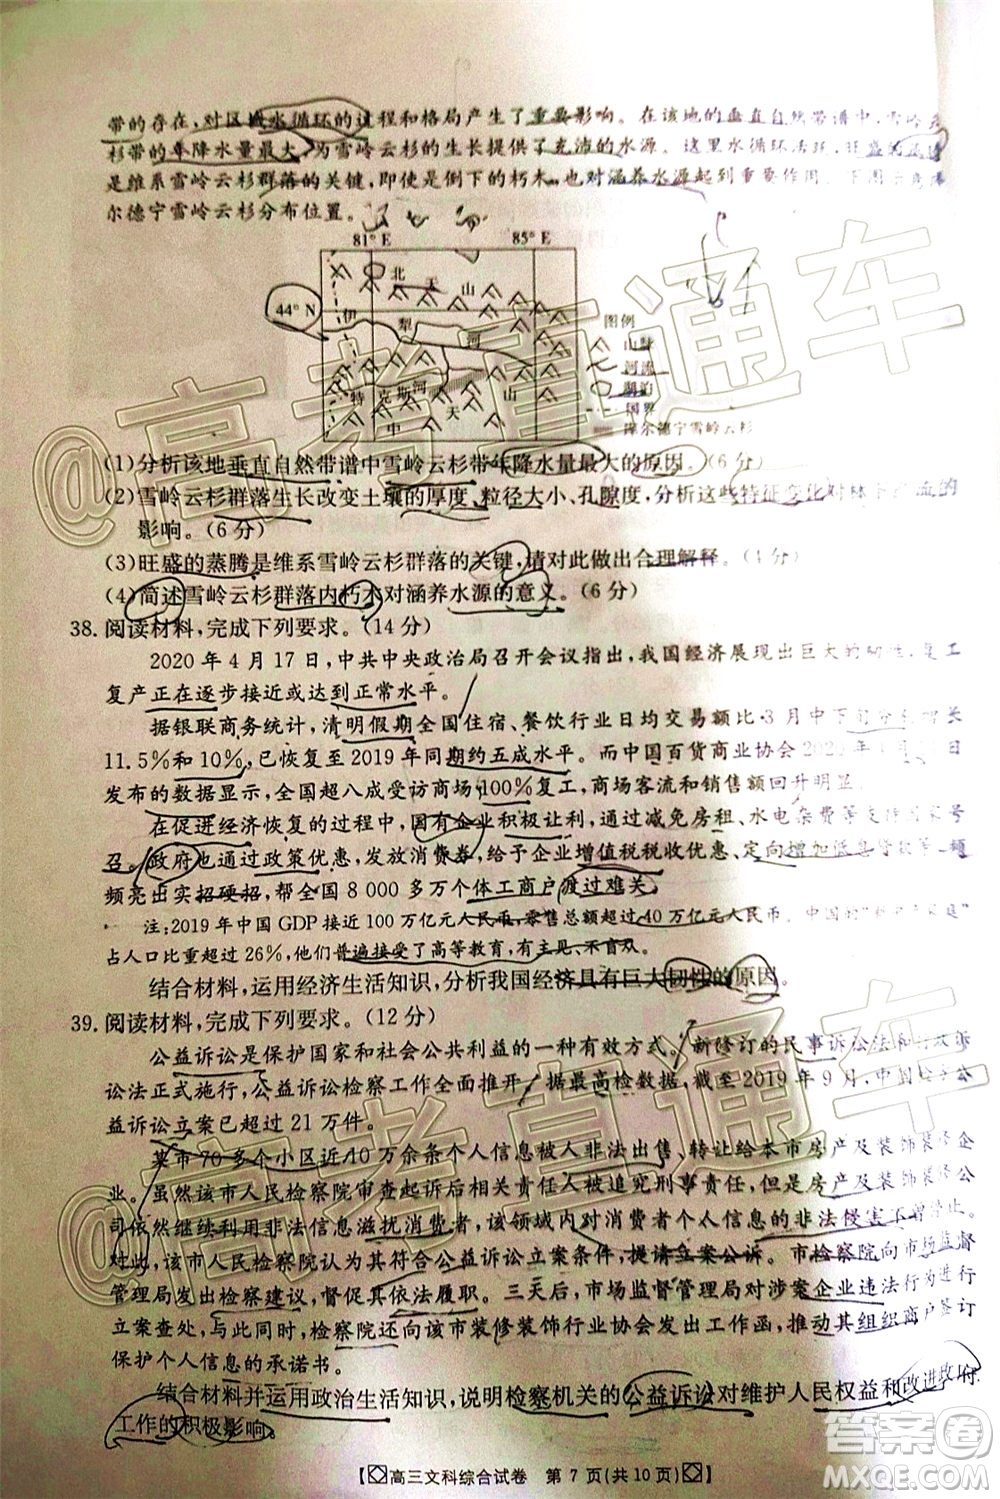 带的存在,对区域水循环的过程和格局产生了重要影响。在该地的垂直自然带谱中,雪岭云
杉带的年降水量最大,为雪岭云杉的生长提供了充沛的水源。这里水循环活跃,旺盛的蒸腾
是维系雪岭云杉群落的关键,即使是倒下的朽木,也对涵养水源起到重要作用。下图示意库
尔德宁雪岭云杉分布位置。
81° E 85° E
北 天 山
44° N
伊 犁 河
特 克 斯 河
中 天 山
图例
山脉
河流
湖泊
国界
库尔德宁雪岭云杉
(1)分析该地垂直自然带谱中雪岭云杉带年降水量最大的原因。(6分)
(2)雪岭云杉群落生长改变土壤的厚度、粒径大小、孔隙度,分析这些特征变化对林下 流的
影响。(6分)
(3)旺盛的蒸腾是维系雪岭云杉群落的关键,请对此做出合理解释。(4分)
(4)简述雪岭云杉群落内朽木对涵养水源的意义。(6分)
38. 阅读材料,完成下列要求。(14分)
2020年4月17日,中共中央政治局召开会议指出,我国经济展现出巨大的韧性,复工
复产正在逐步接近或达到正常水平。
据银联商务统计,清明假期全国住宿、餐饮行业日均交易额比3月中下旬分 增长
11.5%和10%,已恢复至2019年同期约五成水平。而中国百货商业协会 日
发布的数据显示,全国超八成受访商场100%复工,商场客流和销售额回升明显。
在促进经济恢复的过程中,国有企业积极让利,多次减免房租、水电杂费等支持国家号
召。政府也通过政策优惠,发放消费券,给予企业增值税税收优惠、定向增加低息贷款等, 频
频亮出实招硬招,帮全国8 000多万个体工商户渡过难关。
注:2019年中国GDP接近100万亿元人民币,零售总额超过40万亿元人民币。中国的“ 庭”
占人口比重超过26%,他们普遍接受了高等教育,有主见、不盲从。
结合材料,运用经济生活知识,分析我国经济具有巨大韧性的原因。
39. 阅读材料,完成下列要求。(12分)
公益诉讼是保护国家和社会公共利益的一种有效方式。新修订的民事诉讼法和行政诉
讼法正式施行,公益诉讼检察工作全面推开。据最高检数据,截至2019年9月,中国 公
益诉讼立案已超过21万件。
某市70多个小区近10万余条个人信息被人非法出售、转让给本市房产及装饰装修企
业。虽然该市人民检察院审查起诉后相关人员被追究刑事责任,但是房产及装饰装修公
司依然继续利用非法信息滋扰消费者,该领域内对消费者个人信息的非法侵害不增
此,该市人民检察院认为其符合公益诉讼立案条件,提请立案公诉。市检察院向市场监督
管理局发出检察建议,督促其依法履职。三天后,市场监督管理局对涉案企业违法行为进行
立案查处,与此同时,检察院还向该市装修装饰行业协会发出工作函,推动其组织商户签订
保护个人信息的承诺书。
结合材料并运用政治生活知识,说明检察机关的公益诉讼对维护人民权益和改进政府
工作的积极影响。
【高三文科综合试卷 第7页(共10页)】
@高考直通车
@高考直通车
答案圈
MXQE.COM